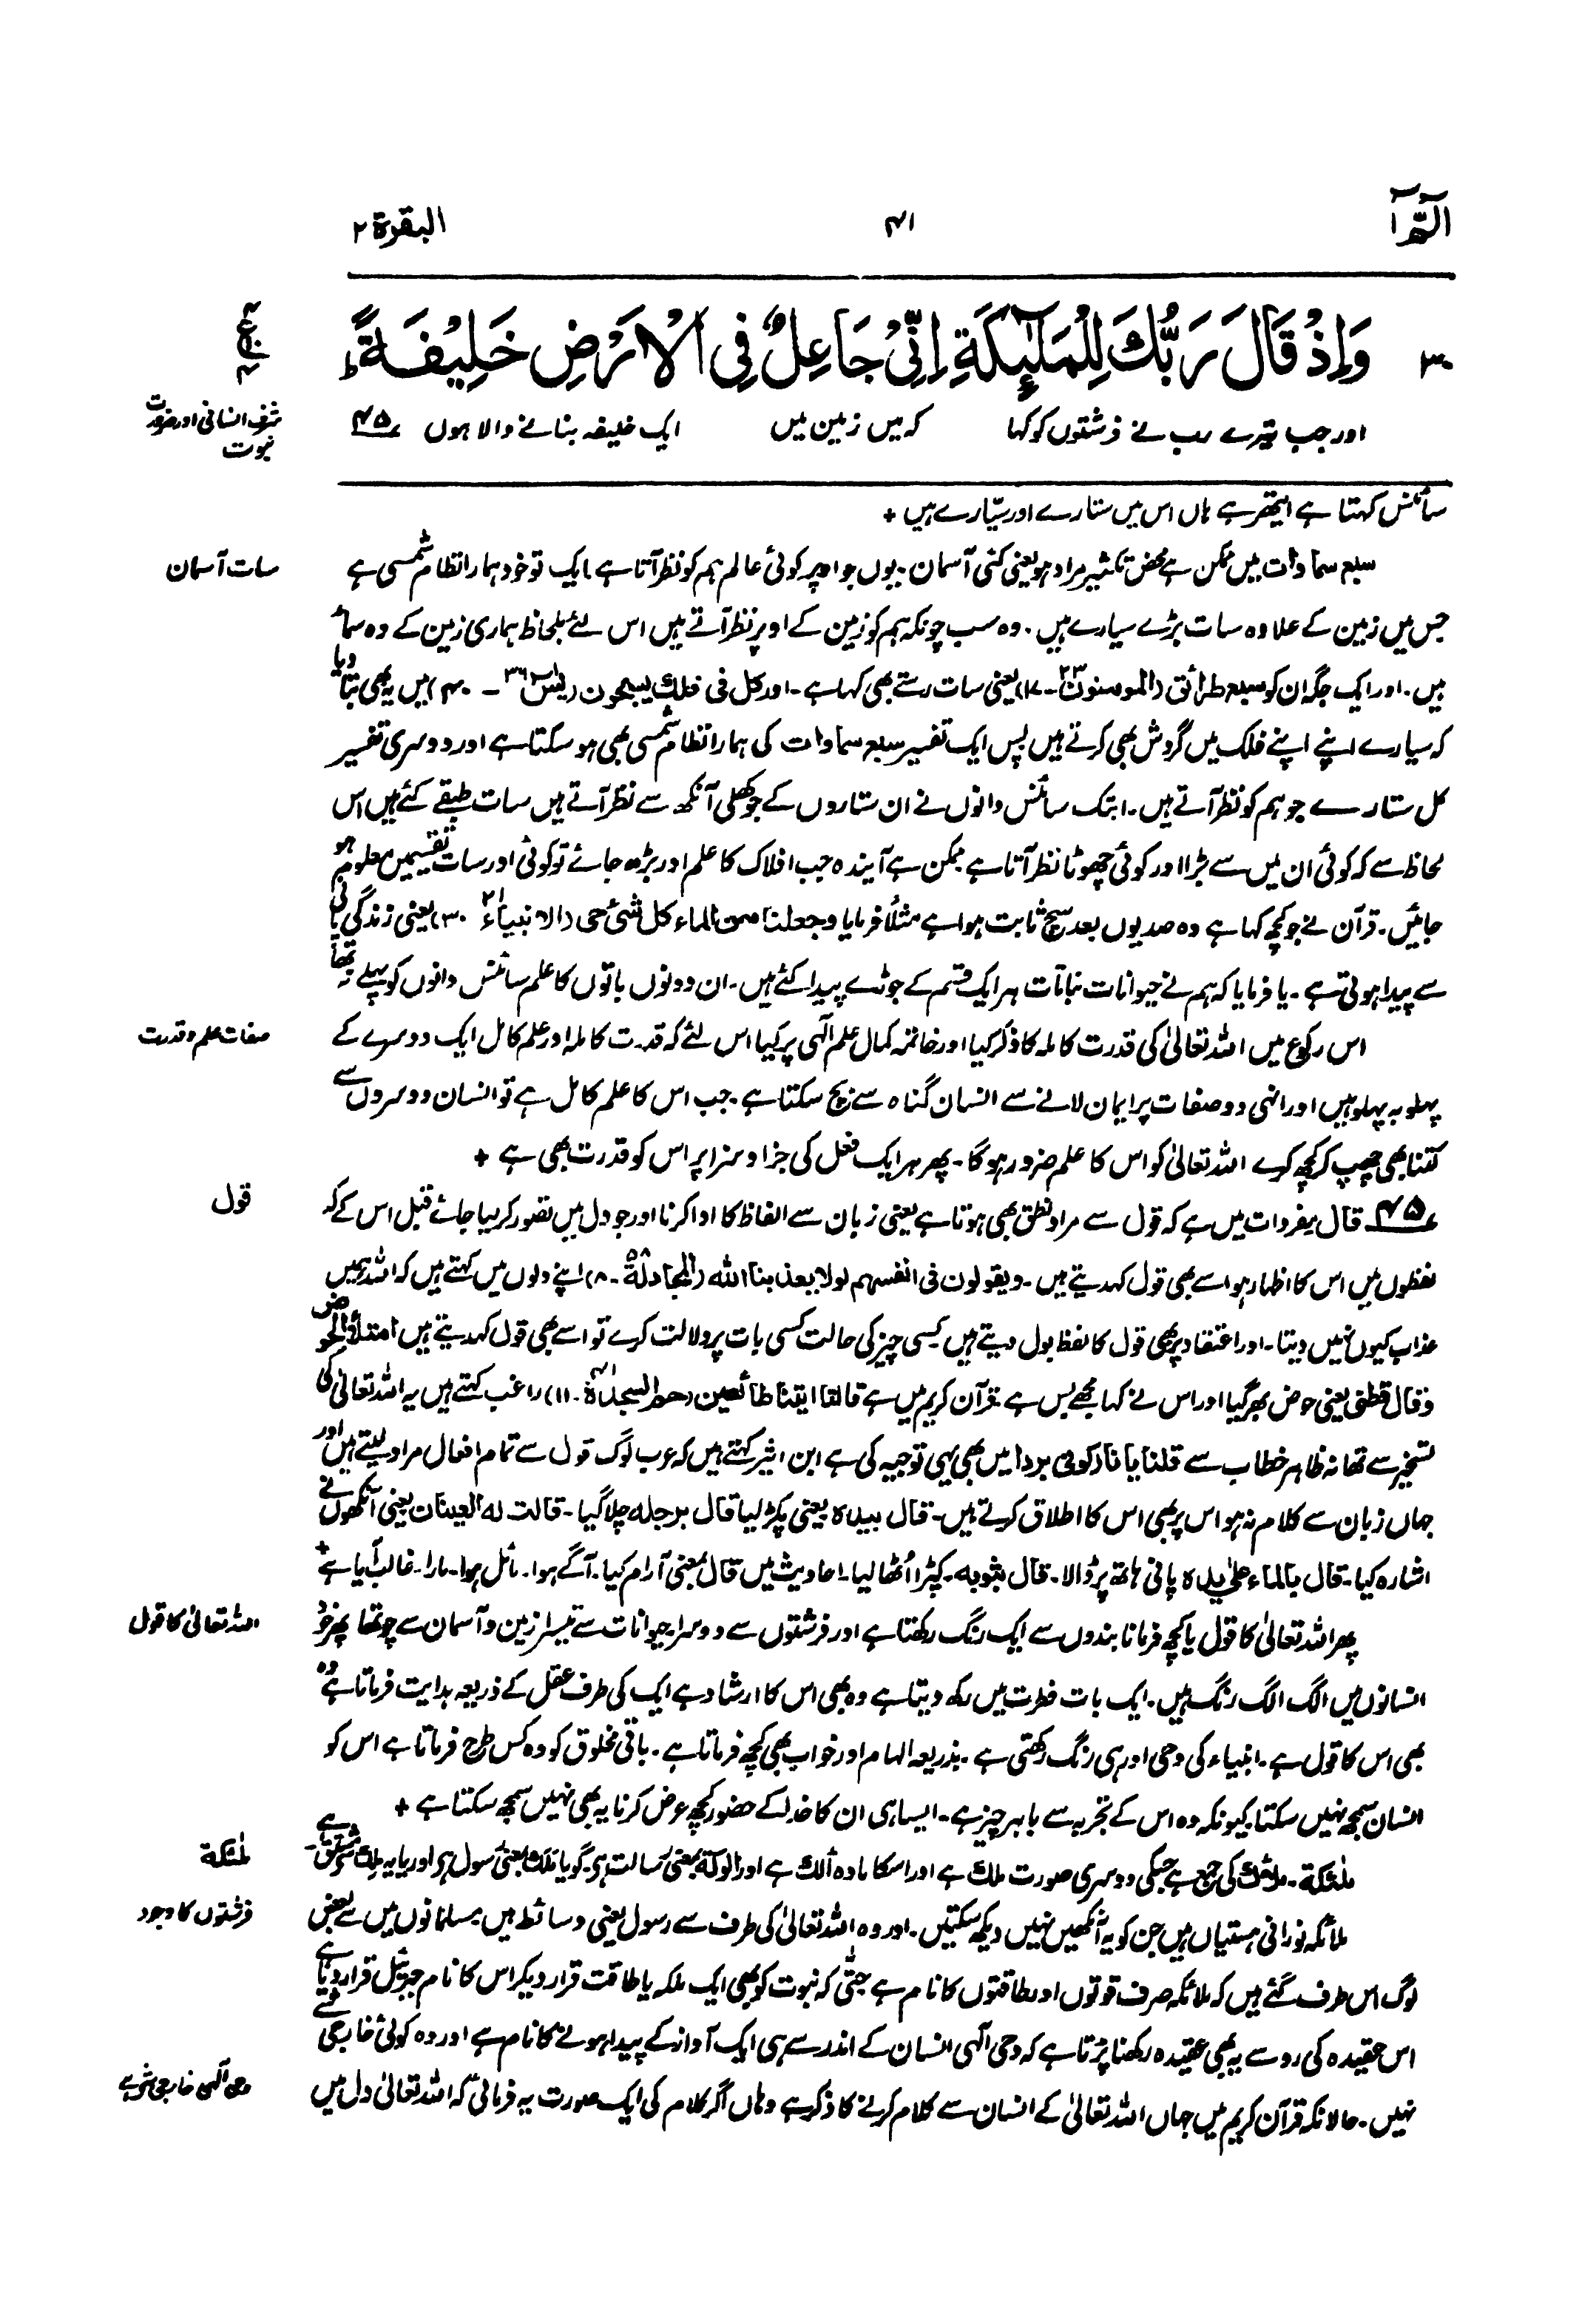 الٓمّٓ ا
۴۱
البقرة ۲
۳۰ وَاِذْ قَالَ رَبُّكَ لِلْمَلٰٓئِكَةِ اِنِّيْ جَاعِلٌ فِي الْاَرْضِ خَلِيْفَةً ؕ
اور جب تیرے رب نے فرشتوں کو کہا کہ میں زمین میں ایک خلیفہ بنانے والا ہوں ۴۵
شرف انسانی اور ضرورت
نبوت
سائنس کہتا ہے ایتھر ہے ہاں اس میں ستارے اور سیّارے ہیں +
سبع سماوات میں ممکن ہے محض تکثیر مراد ہو یعنی کئی آسمان۔ یوں جو اوپر کوئی عالم ہم کو نظر آتا ہے ایک تو خود ہمارا نظام شمسی ہے
سات آسمان
جس میں زمین کے علاوہ سات بڑے سیارے ہیں۔ وہ سب چونکہ ہم کو زمین کے اوپر نظر آتے ہیں اس لئے بلحاظ ہماری زمین کے وہ سماء
ہیں۔ اور ایک جگہ ان کو سبع طرائق (المومنون ۲۳۔ ۱۷) یعنی سات رستے بھی کہا ہے۔ اور کل فی فلك یسبحون (یٰس ۳۶ ۔ ۴۰) میں یہ بھی بتا دیا
کہ سیارے اپنے اپنے فلک میں گردش بھی کرتے ہیں پس ایک تفسیر سبع سماوات کی ہمارا نظام شمسی بھی ہو سکتا ہے اور دوسری تفسیر
کل ستارے جو ہم کو نظر آتے ہیں۔ ابتک سائنس دانوں نے ان ستاروں کے جو کھلی آنکھ سے نظر آتے ہیں سات طبقے کئے ہیں اس
لحاظ سے کہ کوئی ان میں سے بڑا اور کوئی چھوٹا نظر آتا ہے ممکن ہے آیندہ جب افلاک کا علم اور بڑھ جائے تو کوئی اور سات تقسیمیں معلوم ہو
جائیں۔ قرآن نے جو کچھ کہا ہے وہ صدیوں بعد سچ ثابت ہوا ہے مثلاً فرمایا وجعلنا من الماء کل شئ حی (الانبیاء ۲۱ ۔ ۳۰) یعنی زندگی پانی
سے پیدا ہوتی ہے۔ یا فرمایا کہ ہم نے حیوانات نباتات ہر ایک قسم کے جوڑے پیدا کئے ہیں۔ ان دونوں باتوں کا علم سائنس دانوں کو پہلے نہ تھا
اس رکوع میں اللہ تعالیٰ کی قدرت کاملہ کا ذکر کیا اور خاتمہ کمال علم الٰہی پر کیا اس لئے کہ قدرت کاملہ اور علم کامل ایک دوسرے کے
صفات علم و قدرت
پہلو بہ پہلو ہیں اور انہی دو صفات پر ایمان لانے سے انسان گناہ سے بچ سکتا ہے۔ جب اس کا علم کامل ہے تو انسان دوسروں سے
کتنا بھی چھپ کر کچھ کرے اللہ تعالیٰ کو اس کا علم ضرور ہوگا۔ پھر ہر ایک فعل کی جزا و سزا پر اس کو قدرت بھی ہے +
۴۵ قال مفردات میں ہے کہ قول سے مراد نطق بھی ہوتا ہے یعنی زبان سے الفاظ کا ادا کرنا اور جو دل میں تصور کر لیا جائے قبل اس کے کہ
قول
لفظوں میں اس کا اظہار ہو اسے بھی قول کہدیتے ہیں۔ ویقولون فی انفسهم لولا یعذبنا اللہ (المجادلة ۵۸ ۔ ۸) اپنے دلوں میں کہتے ہیں کہ اللہ ہمیں
عذاب کیوں نہیں دیتا۔ اور اعتقاد پر بھی قول کا لفظ بول دیتے ہیں کسی چیز کی حالت کسی بات پر دلالت کرے تو اسے بھی قول کہدیتے ہیں امتلأ الحوض
وقال قطنی یعنی حوض بھر گیا اور اس نے کہا مجھے بس ہے قرآن کریم میں ہے قالتا اتینا طائعین (حٰم السجدة ۴۱ ۔ ۱۱) راغب کہتے ہیں یہ اللہ تعالیٰ کی
تسخیر سے تھا نہ ظاہر خطاب سے قلنا یا نار کونی بردا میں بھی یہی توجیہ کی ہے ابن اثیر کہتے ہیں کہ عرب لوگ قول سے تمام افعال مراد لیتے ہیں اور
جہاں زبان سے کلام نہ ہو اس پر بھی اس کا اطلاق کرتے ہیں۔ قال بیدہ یعنی پکڑ لیا قال برجلہ چلا گیا۔ قالت لہ العینان یعنی آنکھوں نے
اشارہ کیا۔ قال بالماء علی یدہ پانی ہاتھ پر ڈالا۔ قال بثوبہ۔ کپڑا اُٹھا لیا۔ احادیث میں قال بمعنی آرام کیا۔ آگے ہوا۔ مائل ہوا۔ مارا۔ غالب آیا ہے +
پھر اللہ تعالیٰ کا قول یا کچھ فرمانا بندوں سے ایک رنگ رکھتا ہے اور فرشتوں سے دوسرا حیوانات سے تیسرا زمین و آسمان سے چوتھا پھر خود
اللہ تعالیٰ کا قول
انسانوں میں الگ الگ رنگ ہیں۔ ایک بات فطرت میں رکھ دیتا ہے وہ بھی اس کا ارشاد ہے ایک کی طرف عقل کے ذریعہ ہدایت فرماتا ہے وہ
بھی اس کا قول ہے۔ انبیاء کی وحی اور ہی رنگ رکھتی ہے۔ بذریعہ الہام اور خواب بھی کچھ فرماتا ہے۔ باقی مخلوق کو وہ کس طرح فرماتا ہے اس کو
انسان سمجھ نہیں سکتا کیونکہ وہ اس کے تجربہ سے باہر چیز ہے۔ ایسا ہی ان کا خدا کے حضور کچھ عرض کرنا یہ بھی نہیں سمجھ سکتا ہے +
ملٰئکة۔ ملأك کی جمع ہے جسکی دوسری صورت ملك ہے اور اسکا مادہ ألك ہے اور الوکة بمعنی رسالت ہی گویا ملك بمعنی رسول ہی اور یا یہ ملك سے مشتق ہے
ملٰئکة
ملائکہ نورانی ہستیاں ہیں جن کو یہ آنکھیں نہیں دیکھ سکتیں۔ اور وہ اللہ تعالیٰ کی طرف سے رسول یعنی وسائط ہیں۔ مسلمانوں میں سے بعض
فرشتوں کا وجود
لوگ اس طرف گئے ہیں کہ ملائکہ صرف قوتوں اور طاقتوں کا نام ہے حتّٰی کہ نبوت کو بھی ایک ملکہ یا طاقت قرار دیکر اس کا نام جبرئیل قرار دیا ہے
اس عقیدہ کی رو سے یہ بھی عقیدہ رکھنا پڑتا ہے کہ وحی الٰہی انسان کے اندر سے ہی ایک آواز کے پیدا ہونے کا نام ہے اور وہ کوئی خارجی شے
نہیں۔ حالانکہ قرآن کریم میں جہاں اللہ تعالیٰ کے انسان سے کلام کرنے کا ذکر ہے وہاں اگر کلام کی ایک صورت یہ فرمائی کہ اللہ تعالیٰ دل میں
وحی الٰہی خارجی شے ہے